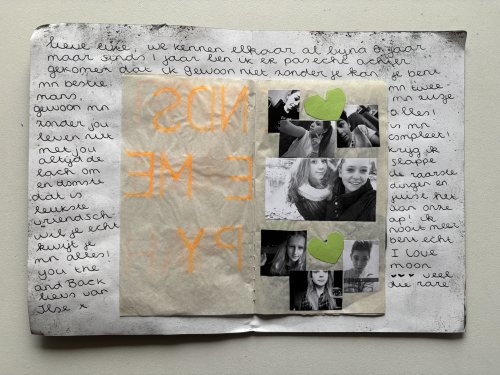 lieve eike, we kennen elkaar al bijna 6 jaar
maar sinds 1 jaar ben ik er pas echt achter
gekomen dat ik gewoon niet zonder je kan, je bent
mn bestie mn twee
mans, mn zusje
gewoon mn alles!
zonder jou is mn
leven niet compleet!
met jou krijg ik
altijd de slappe
lach om de raarste
en domste dingen en
dat is juist het
leukste aan onze
vriendsch ap! ik
wil je echt nooit meer
kwijt je bent echt
mn alles! I love
you the moon
and Back veel
lievs van die rare
Ilse x